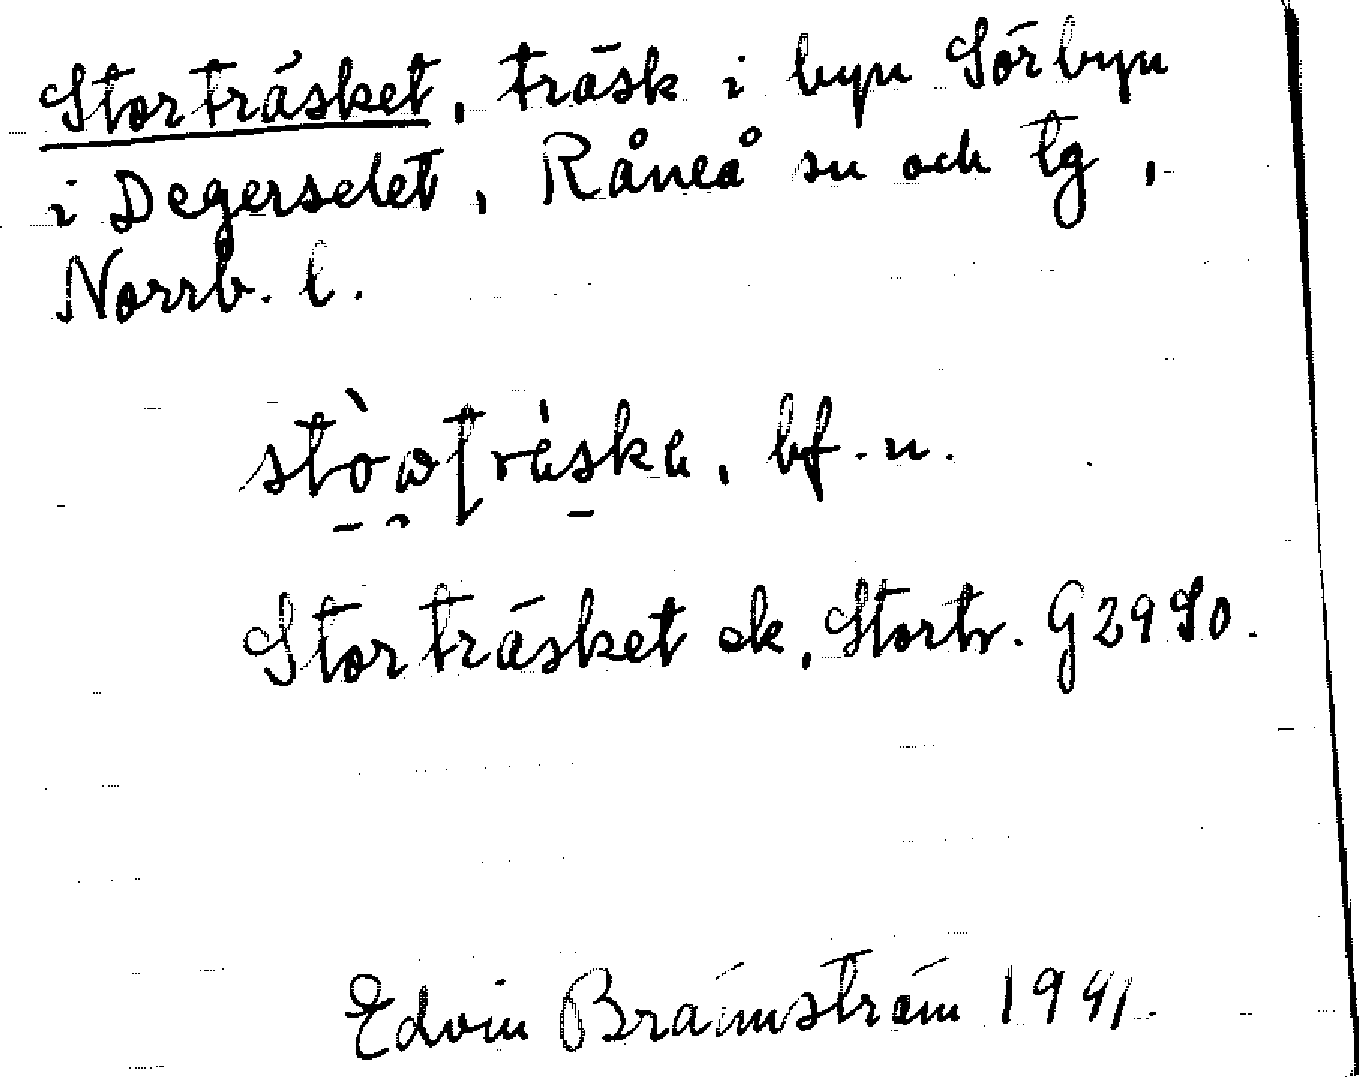 Storträsket, träsk i byn Sörbyn
i Degerselet, Råneå sn och tg,
Norrb. l.
bf. n.
Storträsket ek, Stortr. G 29 SO.
Edvin Brännström 1941.